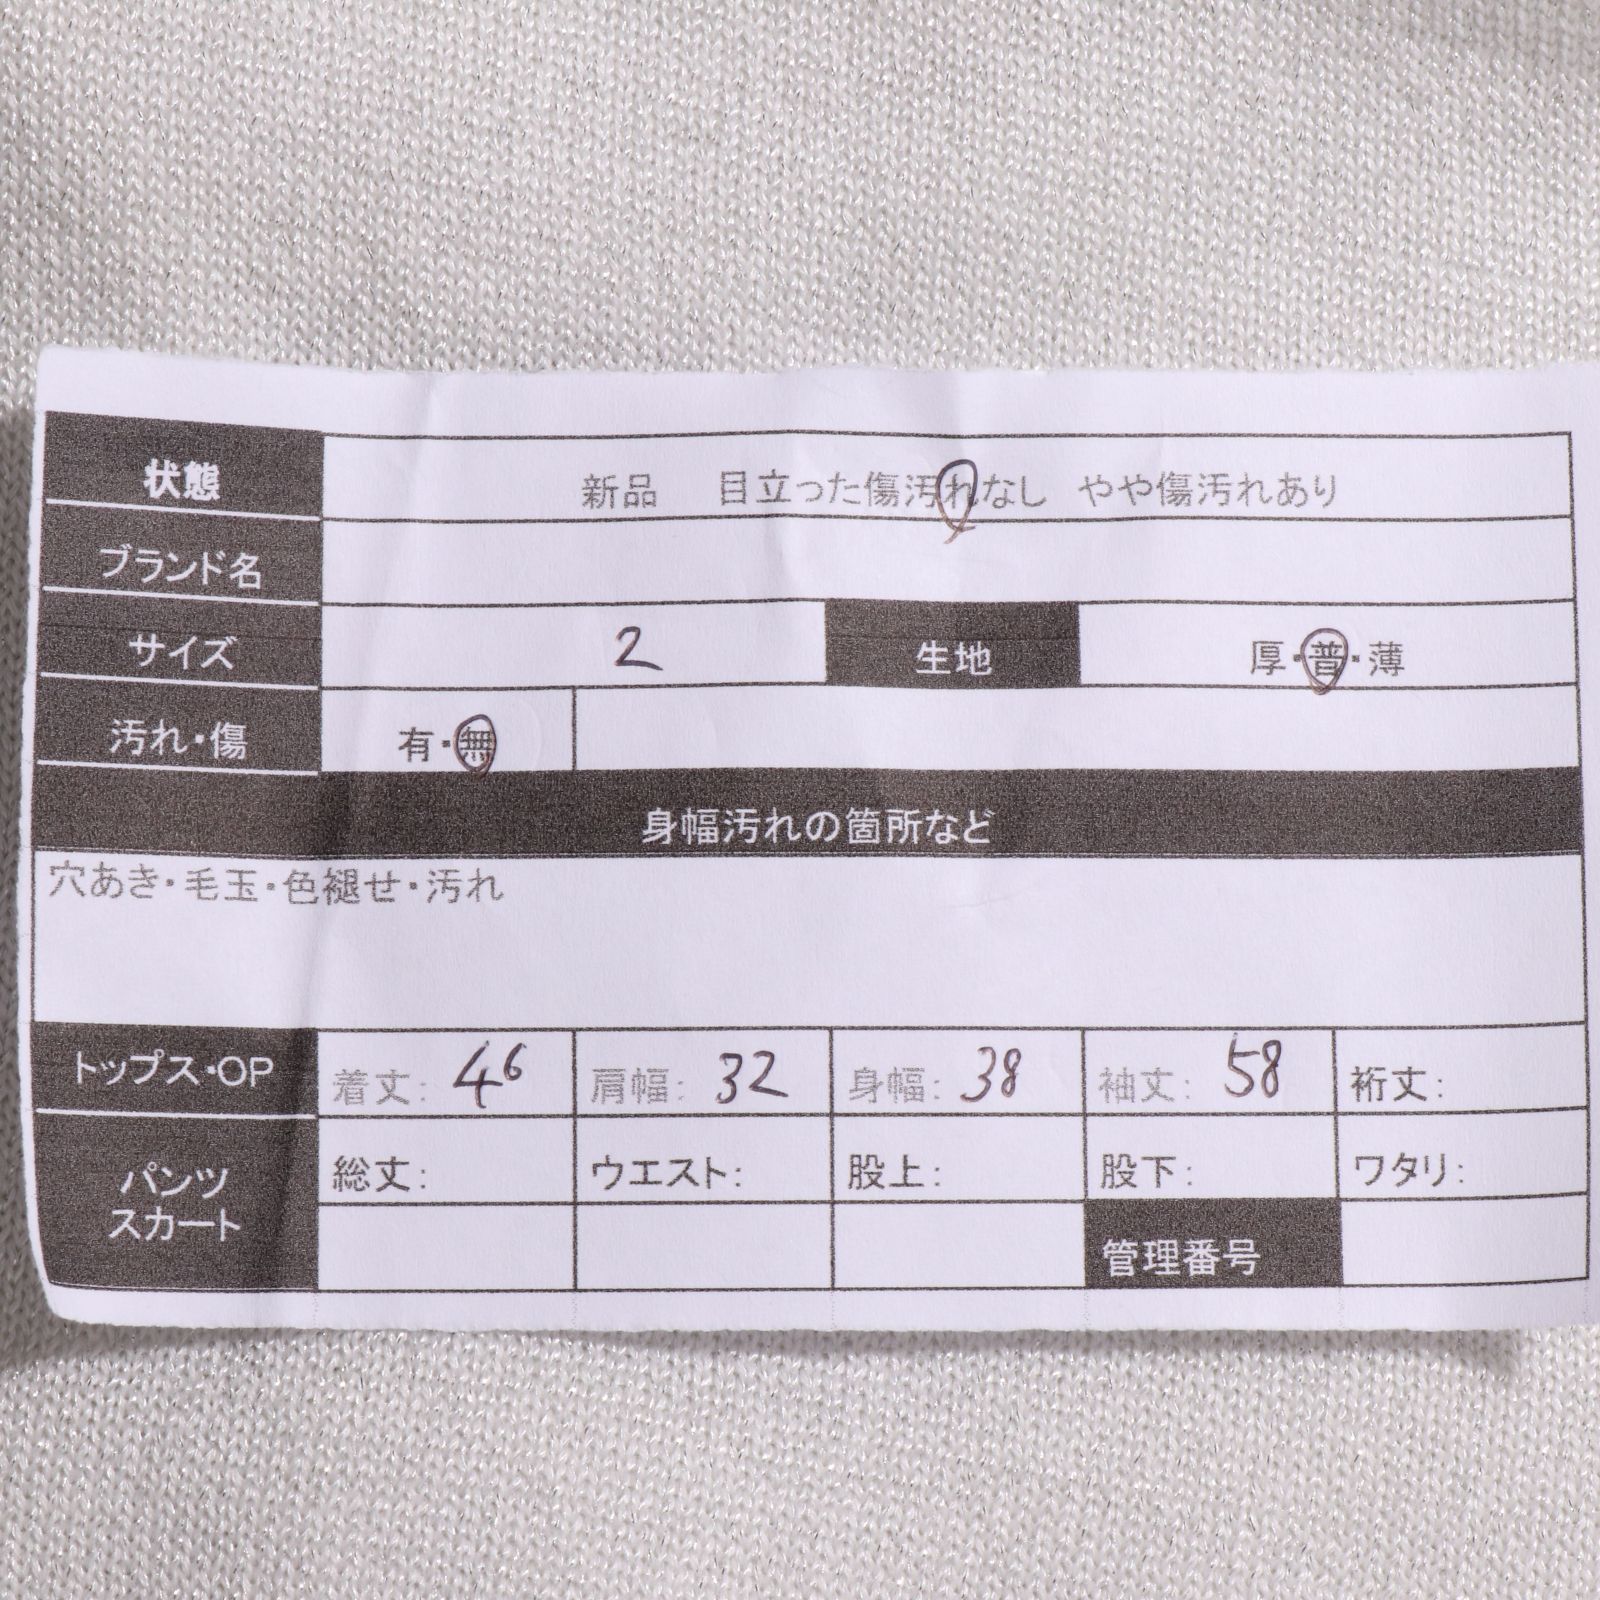 状態 新品 目立った傷汚れなし やや傷汚れあり
ブランド名
サイズ 2 生地 厚・普・薄
汚れ・傷 有・無
身幅汚れの箇所など
穴あき・毛玉・色褪せ・汚れ
トップス・OP 着丈: 46 肩幅: 32 身幅: 38 袖丈: 58 裄丈:
パンツ 総丈: ウエスト: 股上: 股下: ワタリ:
スカート 管理番号